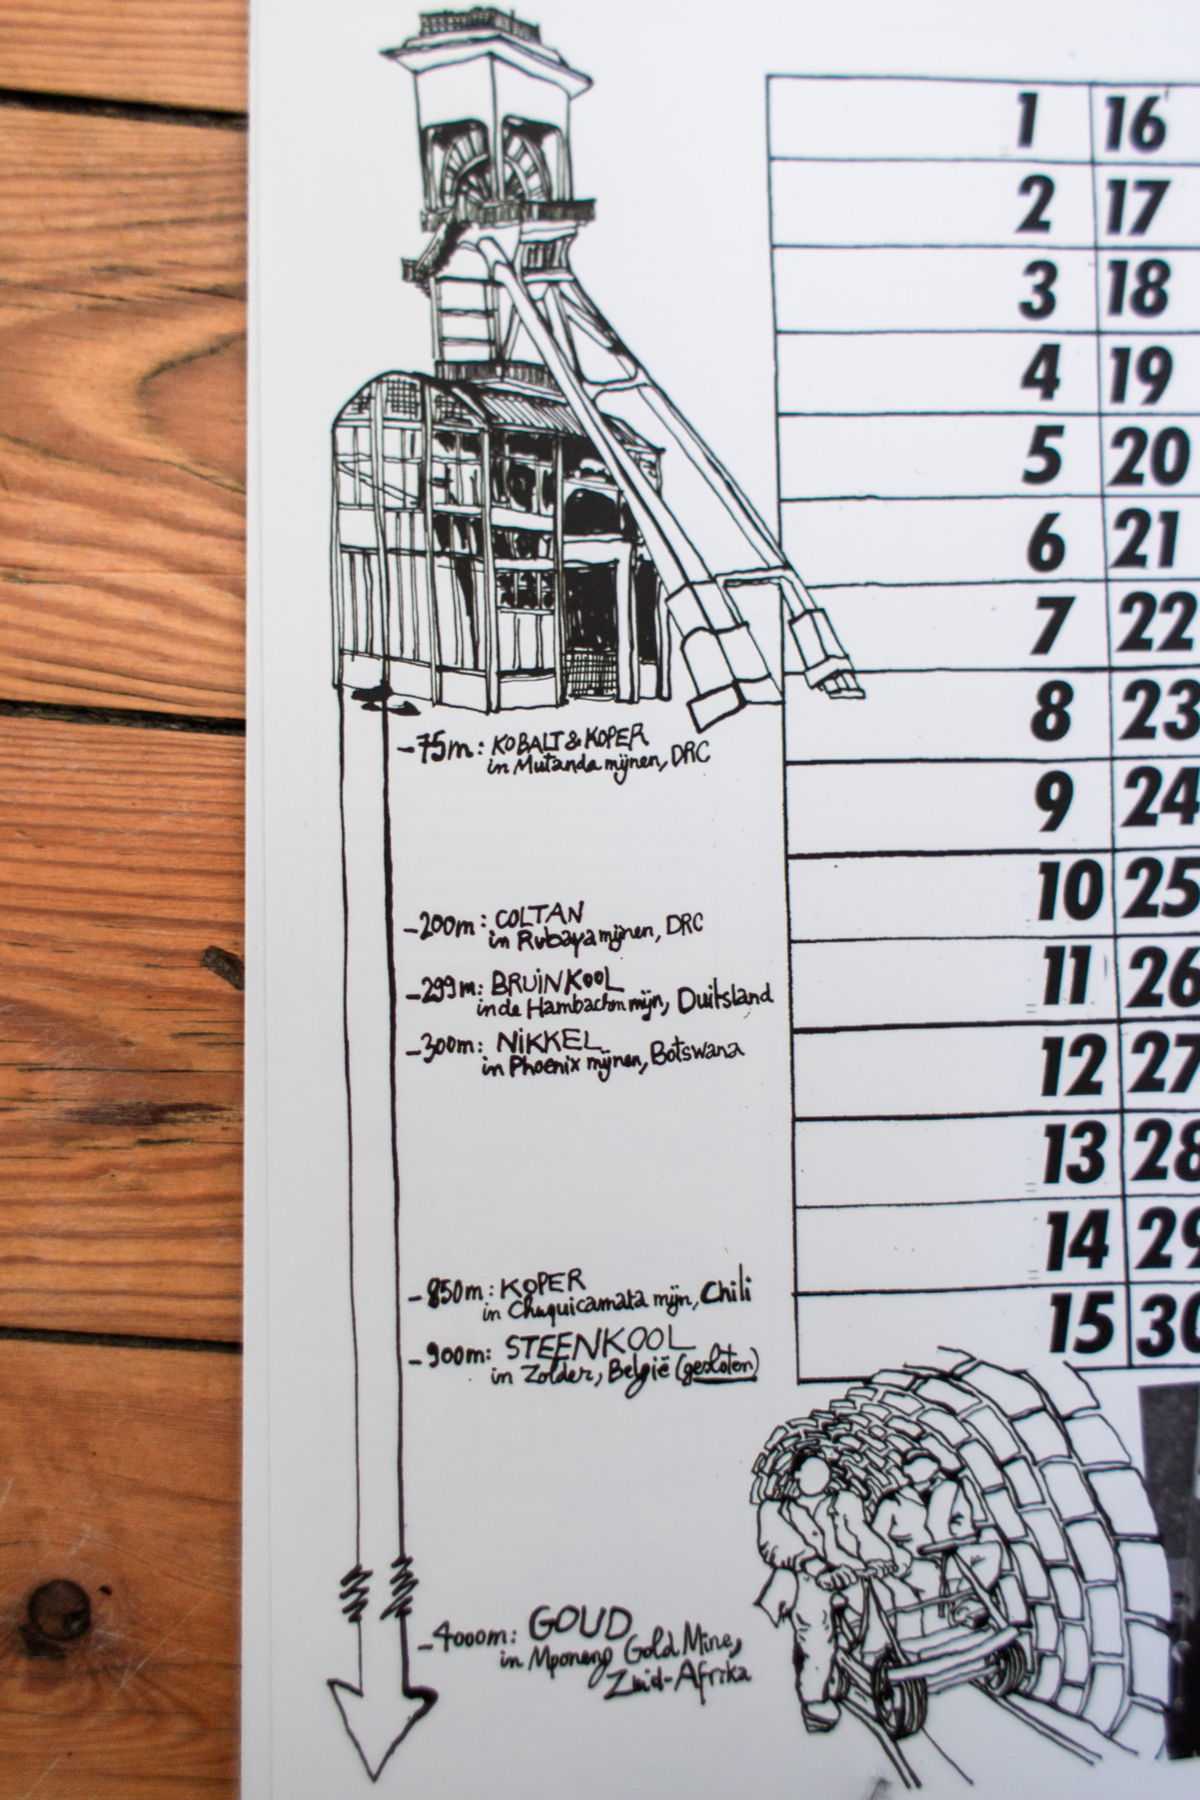 -75m: KOBALT & KOPER
in Mutanda mijnen, DRC
-200m: COLTAN
in Rubaya mijnen, DRC
-299m: BRUINKOOL
in de Hambachm mijn, Duitsland
-300m: NIKKEL
in Phoenix mijnen, Botswana
-850m: KOPER
in Chuquicamata mijn, Chili
-900m: STEENKOOL
in Zolder, België (gesloten)
-4000m: GOUD
in Mponeng Gold Mine,
Zuid-Afrika
1 16
2 17
3 18
4 19
5 20
6 21
7 22
8 23
9 24
10 25
11 26
12 27
13 28
14 29
15 30